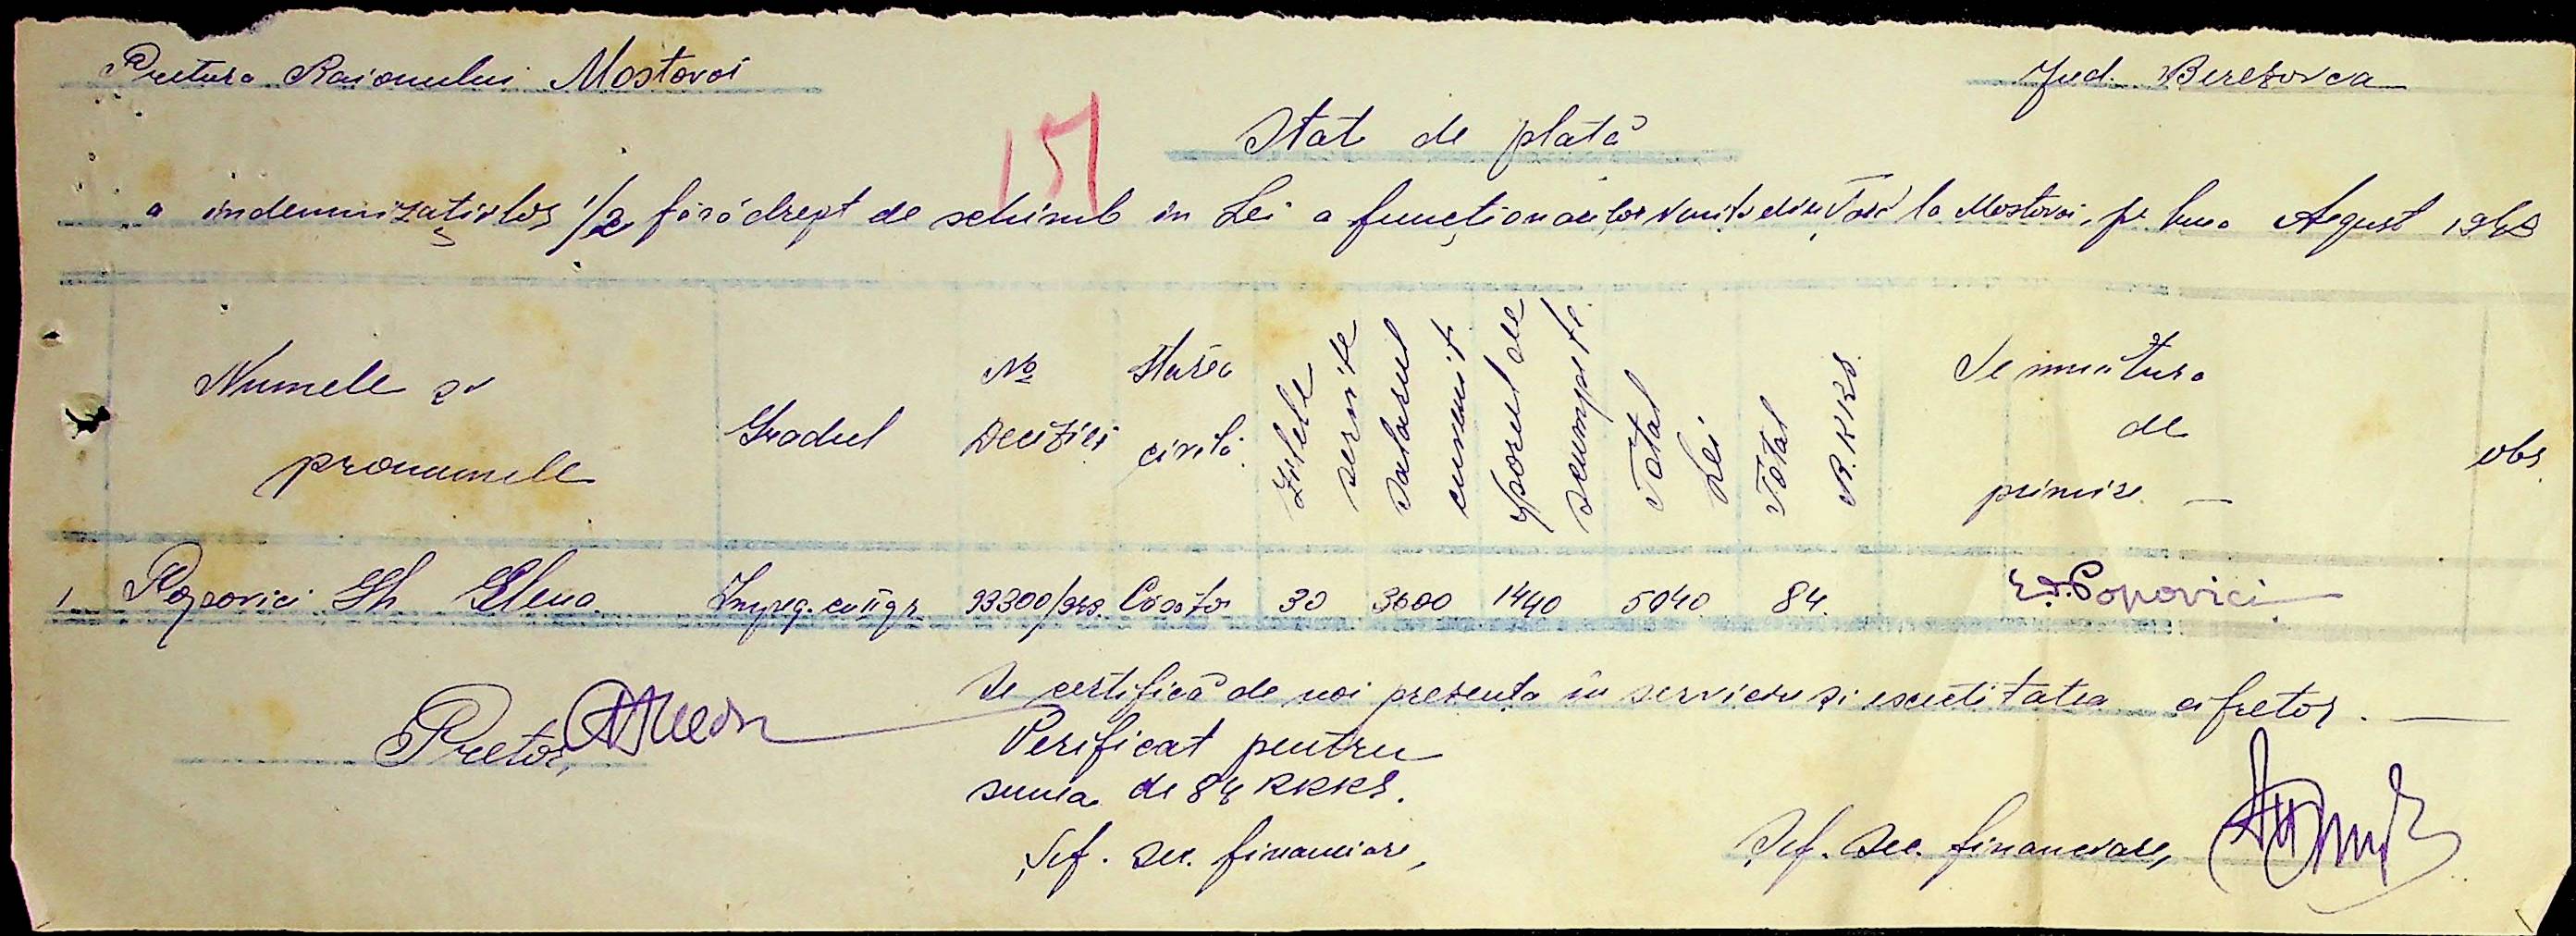 Pretura Raionului Mostovoi
Jud. Berezovca
151
Stat de plată
a indemnizatiilor 1/2 fără drept de schimb in Lei a funcționarilor veniți din Țară la Mostovoi, pe luna August 1943
Numele și pronumele
Gradul
No Deciziei
Starea civilă
Zilele servite
Salarul cuvenit
Sporul de scumpete
Total Lei
Total R.K.K.S.
Semnătura de primire. —
obs
1 Popovici Gh Elena Impreg. cu II gr. 93300/943. Căsăto 30 3600 1440 5040 84. E. Popovici
Se certifică de noi prezența în serviciu și exactitatea cifrelor. —
Pretor,
Verificat pentru
suma de 84 RKKS.
Șef. Sec. financiare,
Șef. Sec. financiare,